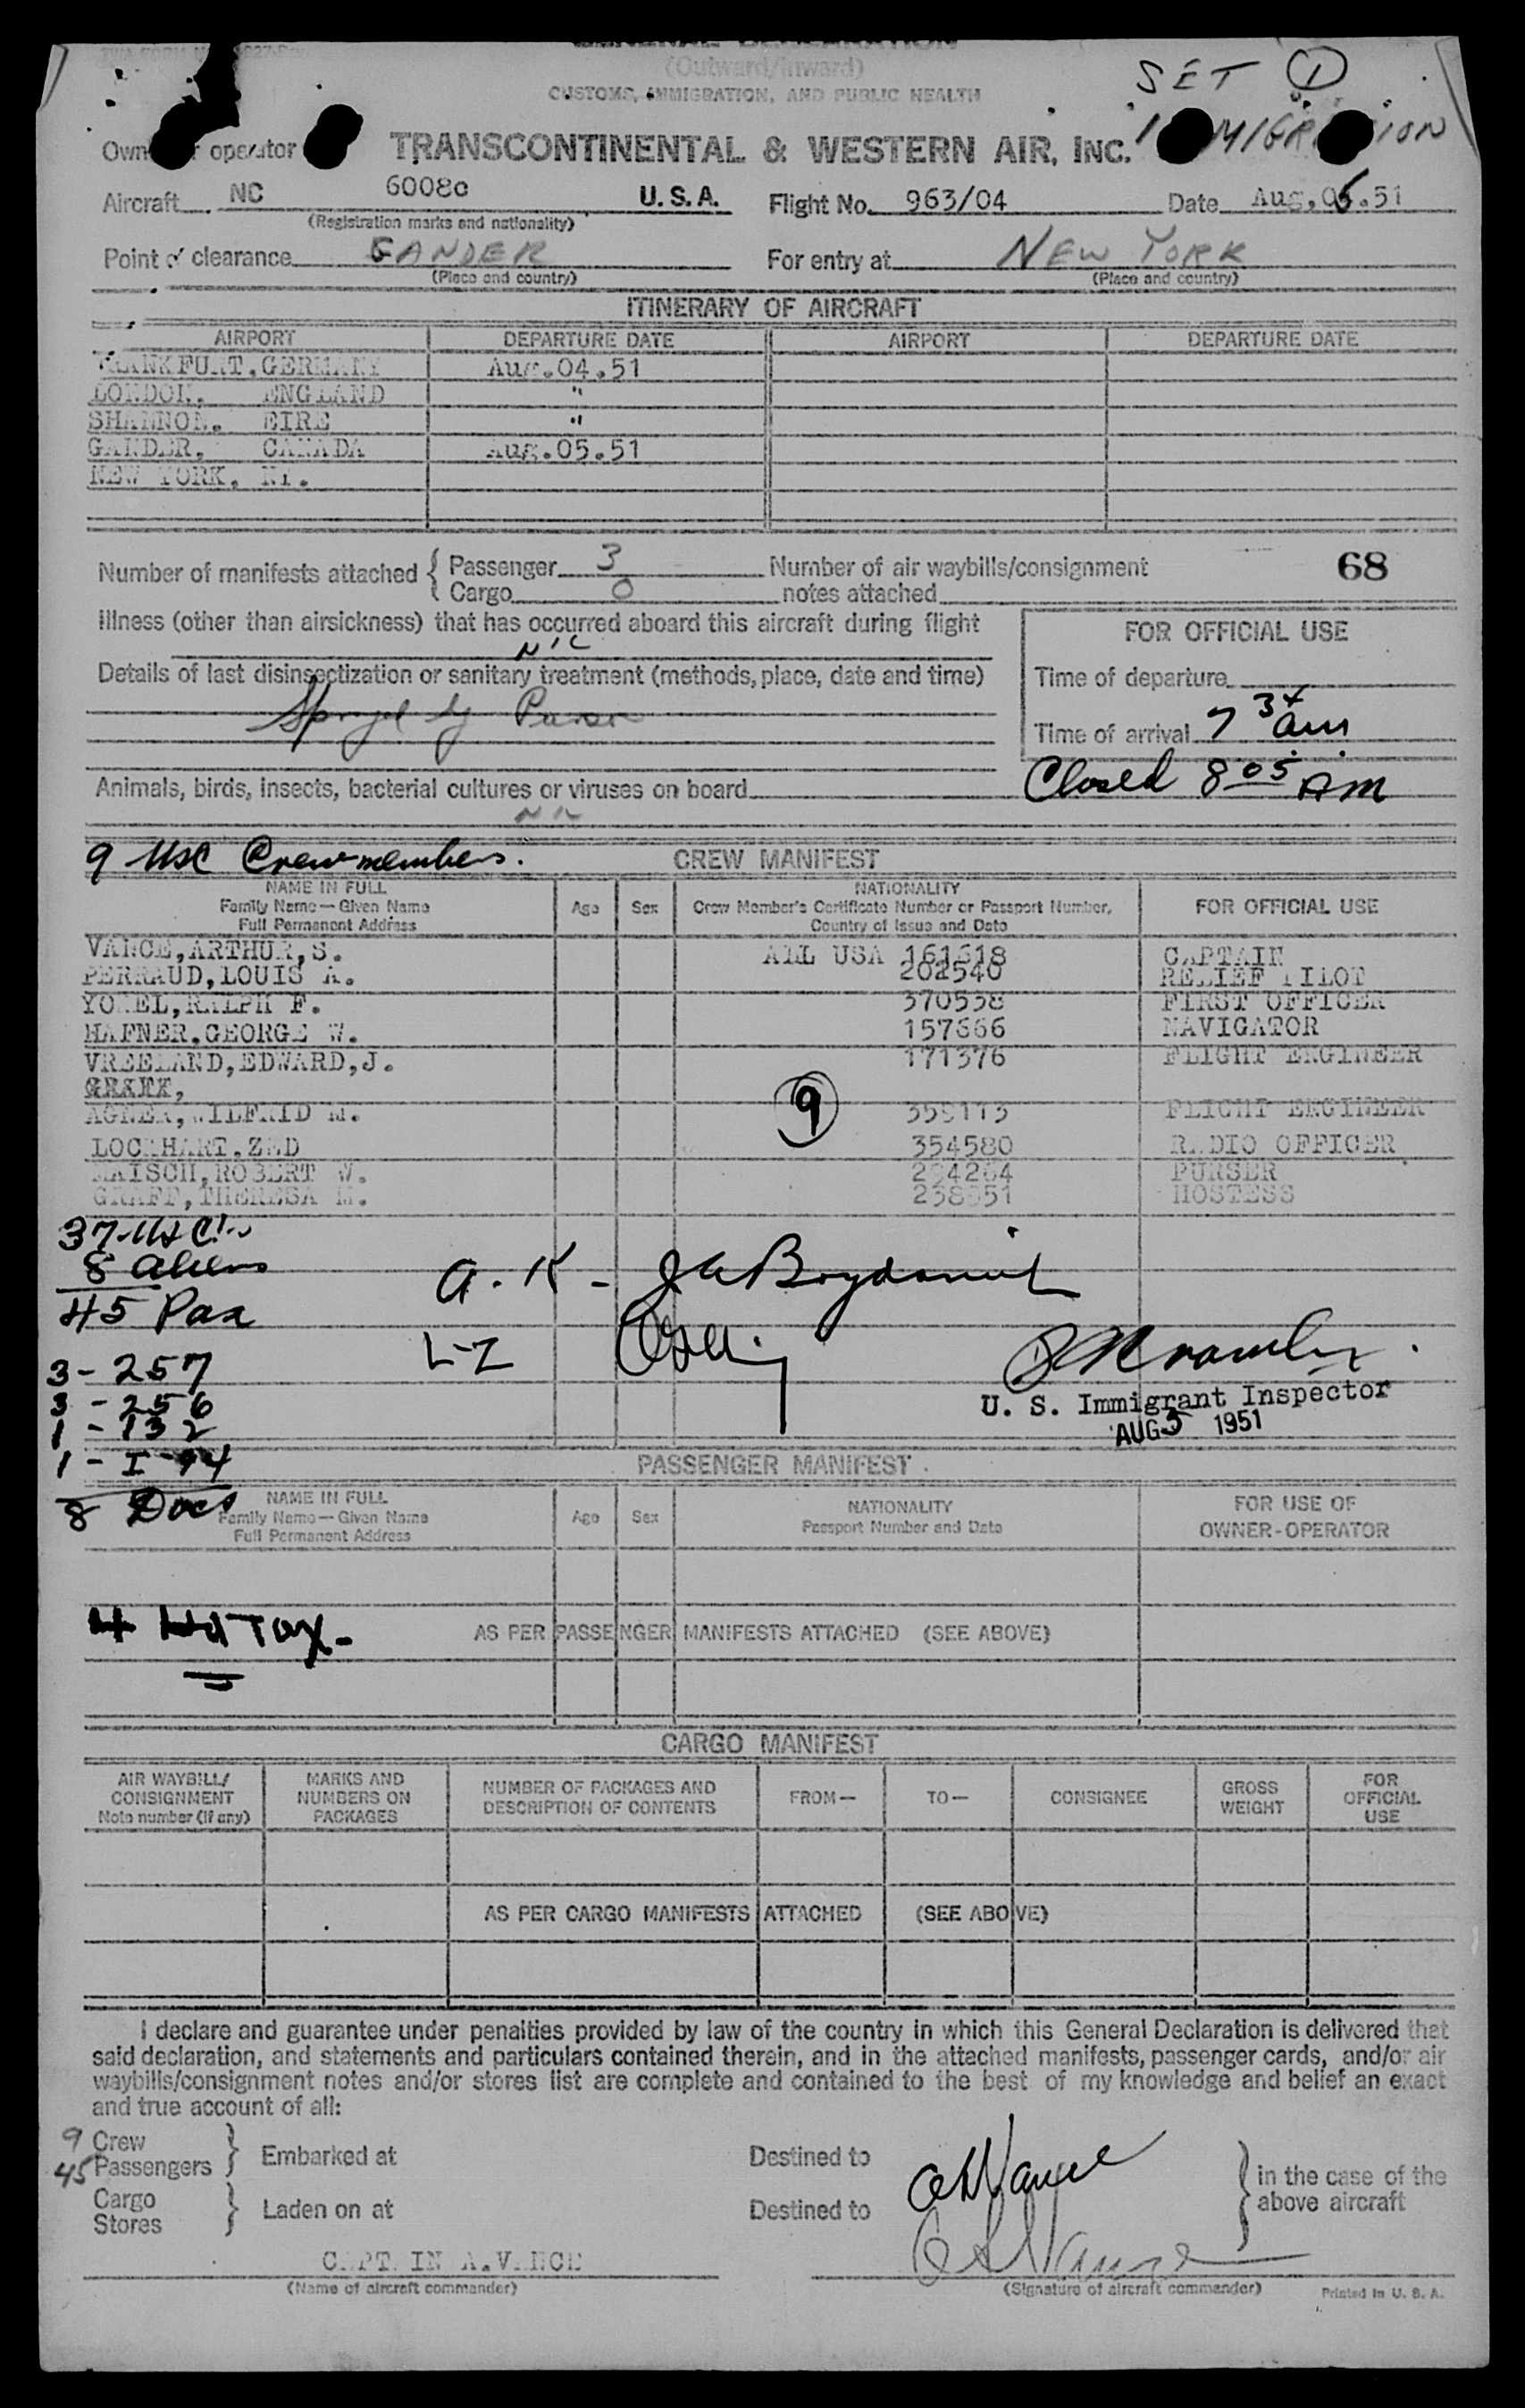 GENERAL DECLARATION
(Outward/Inward)
CUSTOMS, IMMIGRATION, AND PUBLIC HEALTH
SET 1
Owner or operator TRANSCONTINENTAL & WESTERN AIR, INC.
IMMIGRATION
Aircraft NC 6008C U.S.A. Flight No. 963/04 Date Aug. 05.51
(Registration marks and nationality)
Point of clearance GANDER For entry at NEW YORK
(Place and country) (Place and country)
ITINERARY OF AIRCRAFT
AIRPORT DEPARTURE DATE AIRPORT DEPARTURE DATE
FRANKFURT, GERMANY Aug.04.51
LONDON, ENGLAND "
SHANNON, EIRE "
GANDER, CANADA Aug.05.51
NEW YORK, NY.
Number of manifests attached { Passenger 3 Number of air waybills/consignment 68
Cargo 0 notes attached
Illness (other than airsickness) that has occurred aboard this aircraft during flight
NIL
FOR OFFICIAL USE
Details of last disinsectization or sanitary treatment (methods, place, date and time)
Time of departure
by Purser
Time of arrival 7 34 am
Closed 8 05 AM
Animals, birds, insects, bacterial cultures or viruses on board
NIL
9 USC Crewmembers.
CREW MANIFEST
NAME IN FULL Family Name — Given Name Full Permanent Address Age Sex NATIONALITY Crew Member's Certificate Number or Passport Number, Country of Issue and Date FOR OFFICIAL USE
VANCE, ARTHUR, S. ALL USA 161618 CAPTAIN
PERRAUD, LOUIS A. 202540 RELIEF PILOT
RALPH F. 370538 FIRST OFFICER
HAFNER, GEORGE W. 157666 NAVIGATOR
VREELAND, EDWARD, J. 171376 FLIGHT ENGINEER
AGNER, WILFRID M. FLIGHT ENGINEER
9
LOCKHART, ZED 354580 RADIO OFFICER
MAISCH, ROBERT W. PURSER
GRAFF, THERESA M. HOSTESS
37-USC
8 aliens
45 Pax
A. K -
L-Z
3 - 257
3 - 256
1 - 132
1 - I-94
8 Docs
U. S. Immigrant Inspector
AUG 5 1951
PASSENGER MANIFEST
NAME IN FULL Family Name — Given Name Full Permanent Address Age Sex NATIONALITY Passport Number and Date FOR USE OF OWNER-OPERATOR
4 Hd Tax -
AS PER PASSENGER MANIFESTS ATTACHED (SEE ABOVE)
CARGO MANIFEST
AIR WAYBILL/ CONSIGNMENT Note number (if any) MARKS AND NUMBERS ON PACKAGES NUMBER OF PACKAGES AND DESCRIPTION OF CONTENTS FROM— TO— CONSIGNEE GROSS WEIGHT FOR OFFICIAL USE
AS PER CARGO MANIFESTS ATTACHED (SEE ABOVE)
I declare and guarantee under penalties provided by law of the country in which this General Declaration is delivered that
said declaration, and statements and particulars contained therein, and in the attached manifests, passenger cards, and/or air
waybills/consignment notes and/or stores list are complete and contained to the best of my knowledge and belief an exact
and true account of all:
9 Crew
45 Passengers } Embarked at Destined to
Cargo
Stores } Laden on at Destined to
in the case of the
above aircraft
CAPTAIN A. VANCE
(Name of aircraft commander) (Signature of aircraft commander) Printed in U. S. A.